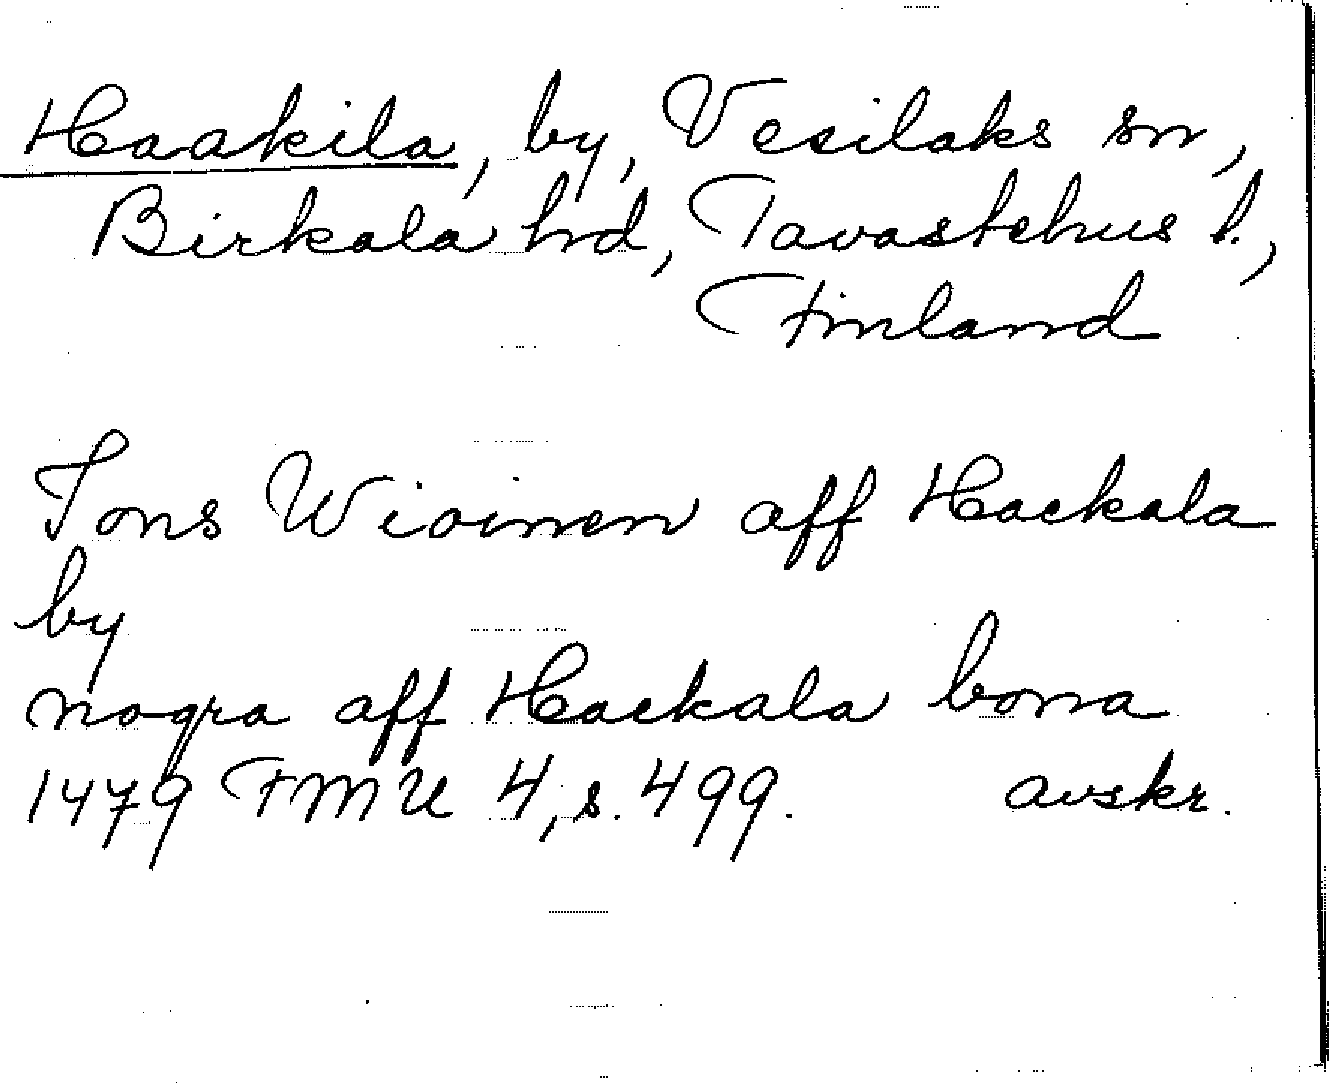 Haakila, by, Vesilaks sn,
Birkala hrd, Tavastehus l.,
Finland
Jons Wioinen aff Hackala
by
nogra aff Hackala bona
1479 FMU 4, s. 499. avskr.